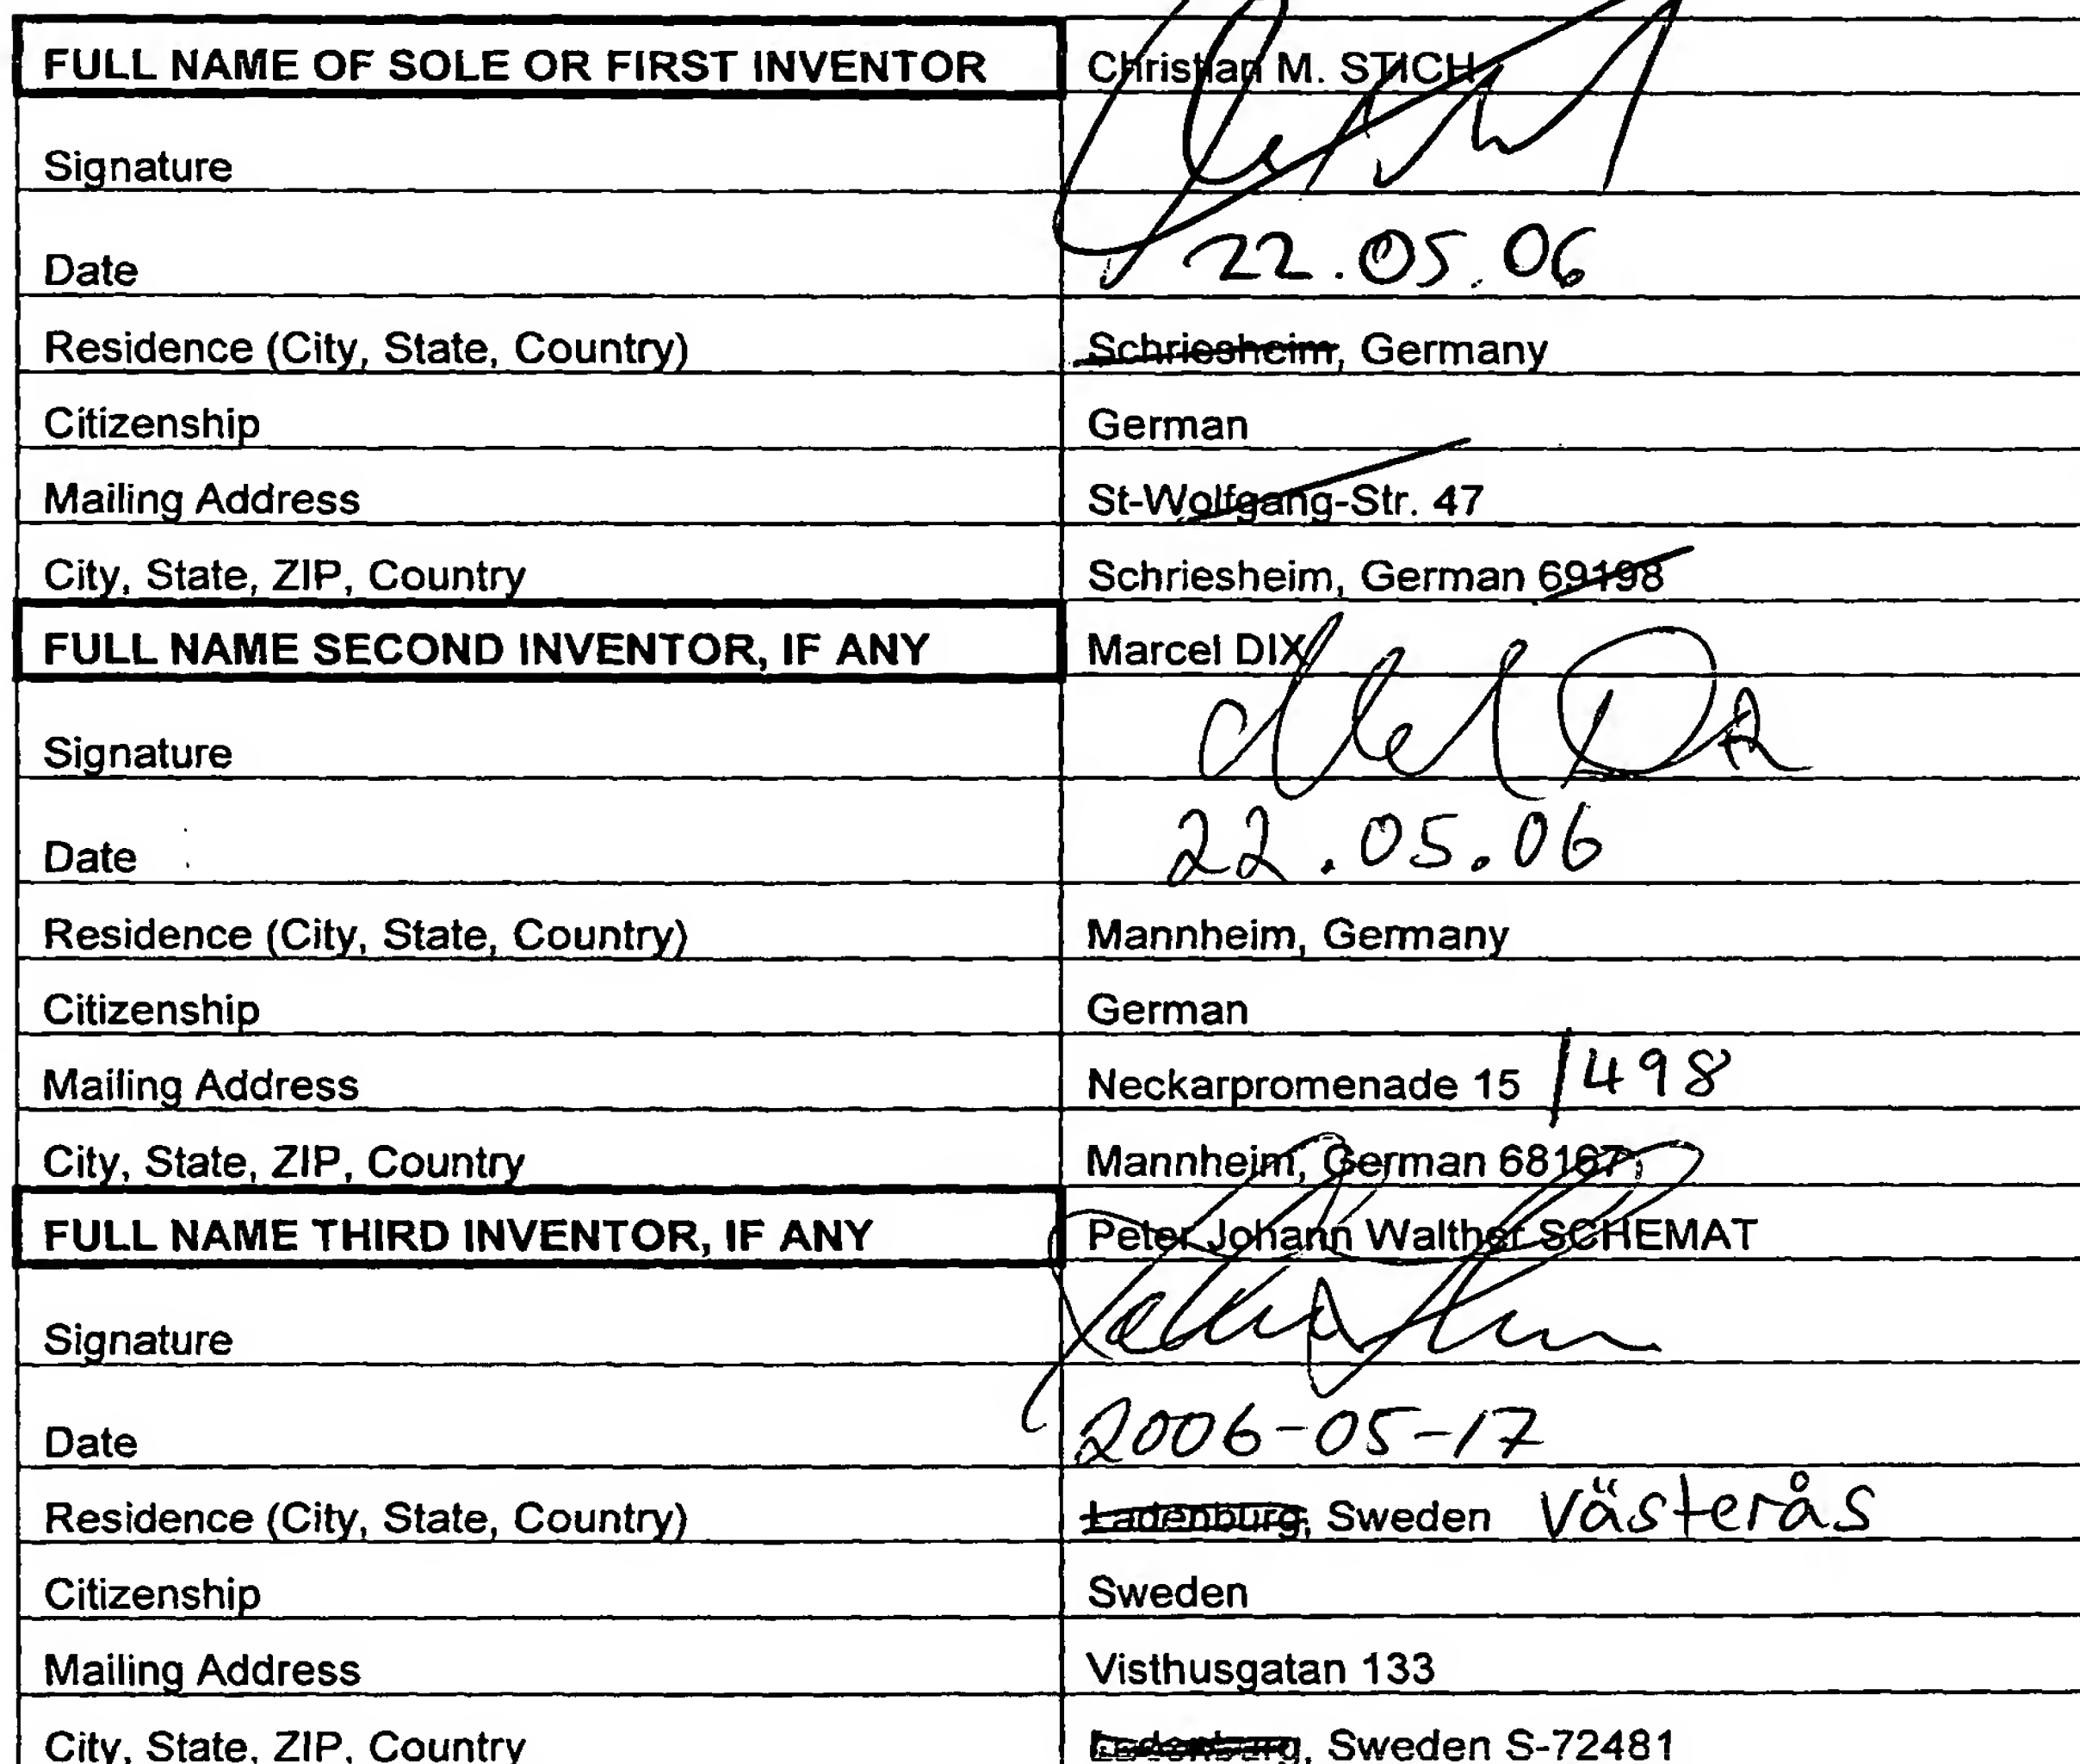 FULL NAME OF SOLE OR FIRST INVENTOR Christian M. STICH
Signature
Date 22.05.06
Residence (City, State, Country) Schriesheim, Germany
Citizenship German
Mailing Address St-Wolfgang-Str. 47
City, State, ZIP, Country Schriesheim, German 69198
FULL NAME SECOND INVENTOR, IF ANY Marcel DIX
Signature
Date 22.05.06
Residence (City, State, Country) Mannheim, Germany
Citizenship German
Mailing Address Neckarpromenade 15 /498
City, State, ZIP, Country Mannheim, German 68167
FULL NAME THIRD INVENTOR, IF ANY Peter Johann Walther SCHEMAT
Signature
Date 2006-05-17
Residence (City, State, Country) Ladenburg, Sweden Västerås
Citizenship Sweden
Mailing Address Visthusgatan 133
City, State, ZIP, Country Ladenburg, Sweden S-72481